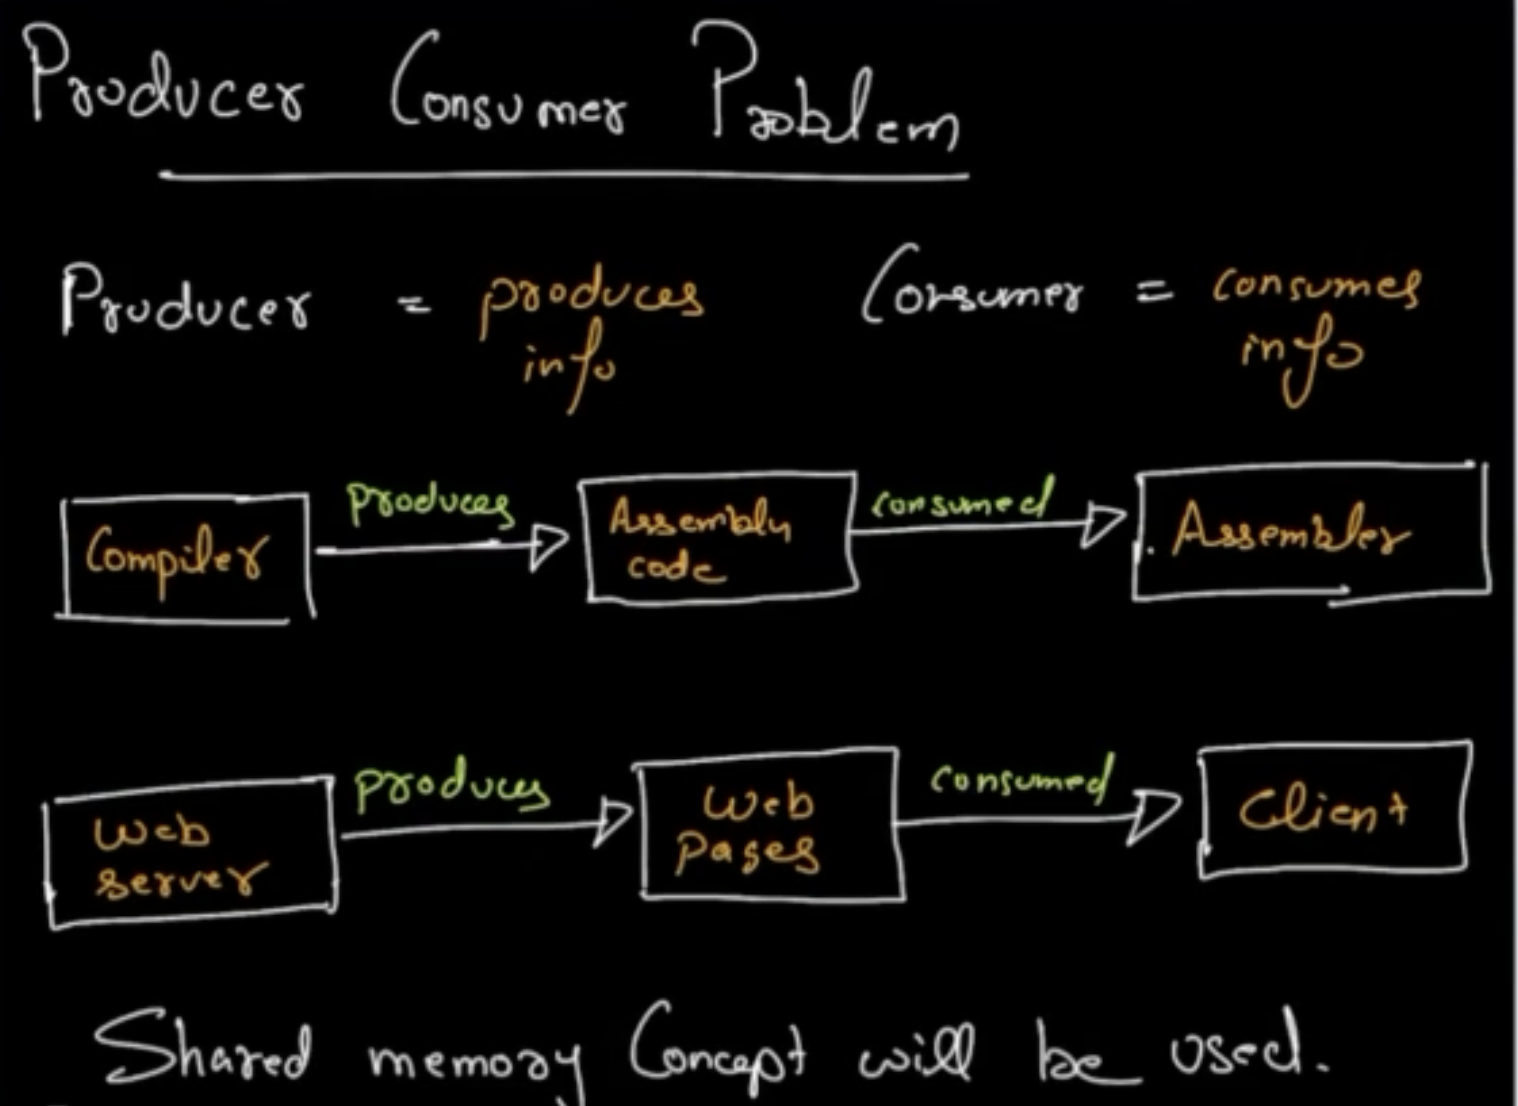 Producer Consumer Problem
Producer = produces info
Consumer = consumes info
Compiler
produces
Assembly code
consumed
Assembler
Web server
produces
Web Pages
consumed
Client
Shared memory Concept will be used.